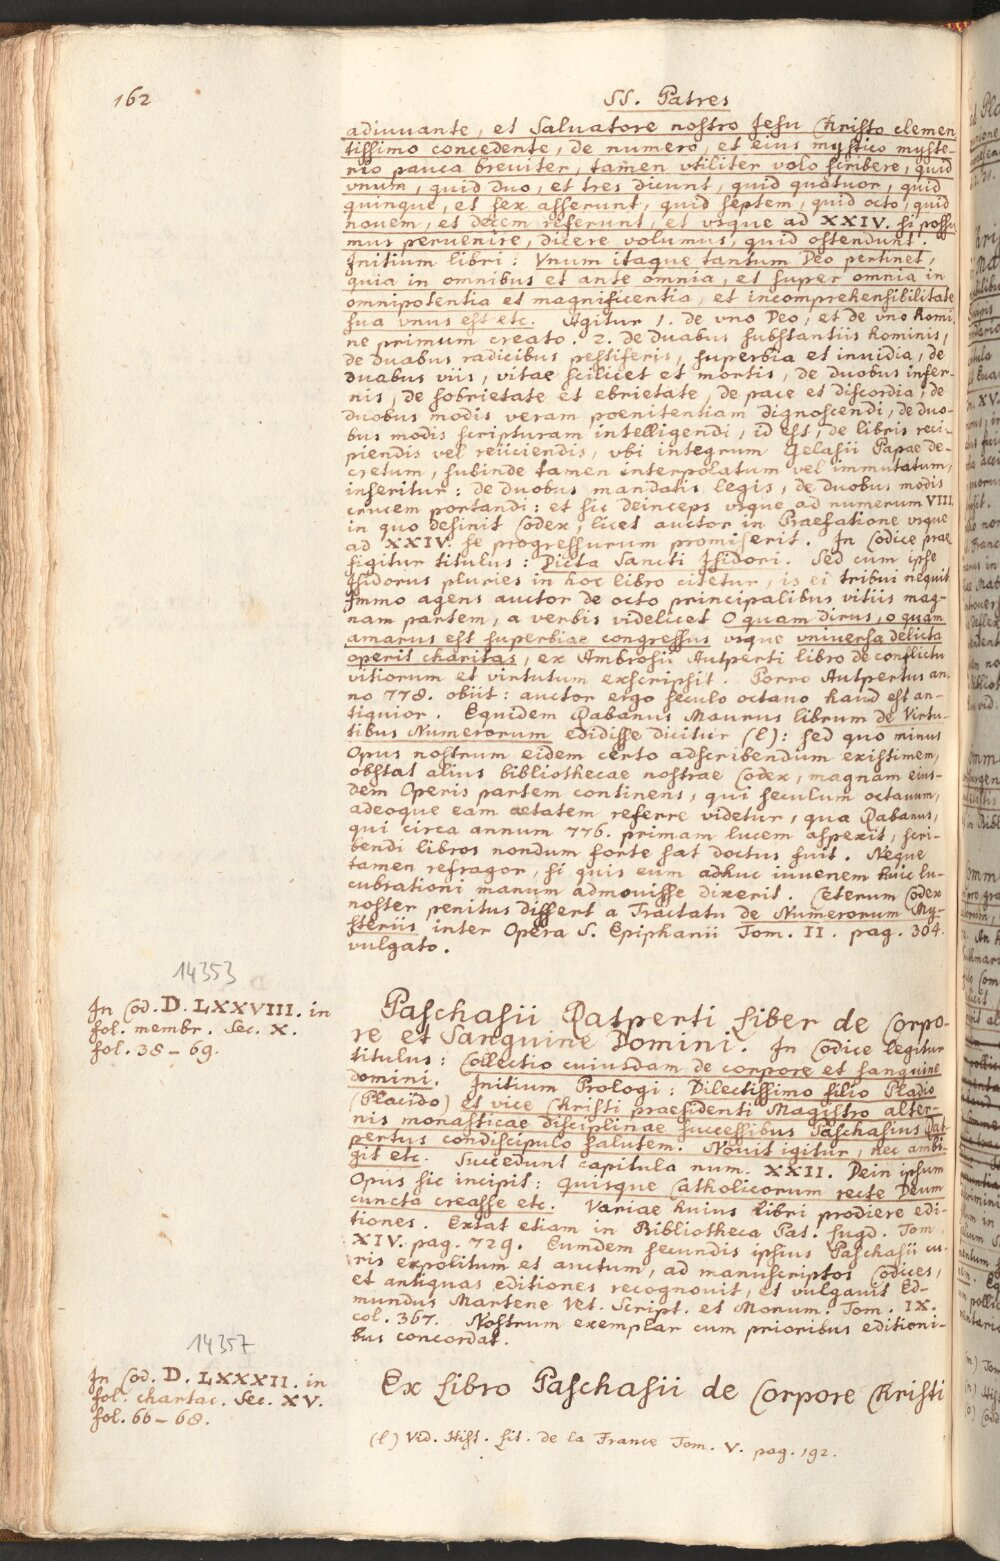 162
SS. Patres
adiuuante, et Saluatore nostro Jesu Christo clemen
tissimo concedente, de numero, et eius mystico myste-
rio pauca breuiter, tamen vtiliter volo scribere, quid
vnum, quid duo, et tres dicunt, quid quatuor, quid
quinque, et sex asserunt, quid septem, quid octo, quid
nouem, et decem referunt, et vsque ad XXIV. si possu
mus peruenire, dicere volumus, quid ostendunt.
Initium libri: Vnum itaque tantum Deo pertinet,
quia in omnibus et ante omnia, et super omnia in
omnipotentia et magnificentia, et incomprehensibilitate
sua vnus est etc. Agitur 1. de vno Deo, et de vno homi
ne primum creato. 2. de duabus substantiis hominis,
de duabus radicibus pestiferis, superbia et inuidia, de
duabus viis, vitae scilicet et mortis, de duobus infer-
nis, de sobrietate et ebrietate, de pace et discordia, de
duobus modis veram poenitentiam dignoscendi, de duo-
bus modis scripturam intelligendi, id est, de libris reci-
piendis vel reiiciendis, vbi integrum Gelasii Papae de-
cretum, subinde tamen interpolatum vel immutatum,
inseritur: de duobus mandatis legis, de duobus modis
crucem portandi: et sic deinceps vsque ad numerum VIII.
in quo definit Codex, licet auctor in Praefatione vsque
ad XXIV. se progressurum promiserit. In Codice prae
figitur titulus: Dicta Sancti Isidori. Sed cum ipse
Isidorus pluries in hoc libro citetur, is ei tribui nequit
Immo agens auctor de octo principalibus vitiis mag-
nam partem, a verbis videlicet O quam dirus, o quam
amarus est superbiae congressus vsque vniuersa delicta
operit charitas, ex Ambrosii Autperti libro de conflictu
vitiorum et virtutum exscripsit. Porro Autpertus an.
no 778. obiit: auctor ergo seculo octauo haud est an-
tiquior. Equidem Rabanus Maurus librum de Virtu-
tibus Numerorum edidisse dicitur (l): sed quo minus
Opus nostrum eidem certo adscribendum existimem,
obstat alius bibliothecae nostrae Codex, magnam eius-
dem Operis partem continens, qui seculum octauum,
adeoque eam aetatem referre videtur, qua Rabanus,
qui circa annum 776. primam lucem aspexit, scri-
bendi libros nondum forte sat doctus fuit. Neque
tamen refragor, si quis eum adhuc iuuenem huic lu-
cubrationi manum admouisse dixerit. Ceterum Codex
noster penitus differt a Tractatu de Numerorum My-
steriis inter Opera S. Epiphanii Tom. II. pag. 304.
vulgato.
14353
In Cod. D. LXXVIII. in
fol. membr. Sec. X.
fol. 38-69.
Paschasii Ratperti Liber de Corpo-
re et Sanguine Domini. In Codice legitur
titulus: Collectio cuiusdam de corpore et sanguine
domini. Initium Prologi: Dilectissimo filio Pladio
(Placido) et vice Christi praesidenti Magistro alter-
nis monasticae disciplinae successibus Paschasius Rat-
pertus condiscipulo salutem. Nouit igitur, nec ambi-
git etc. Succedunt capitula num. XXII. Dein ipsum
Opus sic incipit: Quisque Catholicorum recte Deum
cuncta creasse etc. Variae huius libri prodiere edi-
tiones. Extat etiam in Bibliotheca Pat. Lugd. Tom.
XIV. pag. 729. Eumdem secundis ipsius Paschasii cu-
ris expolitum et auctum, ad manuscriptos Codices,
et antiquas editiones recognouit, et vulgauit Ed-
mundus Martene Vet. Script. et Monum. Tom. IX.
col. 367. Nostrum exemplar cum prioribus editioni-
bus concordat.
14357
In Cod. D. LXXXII. in
fol. chartac. Sec. XV.
fol. 66-68.
Ex Libro Paschasii de Corpore Christi
(l) Vid. Hist. Lit. de la France Tom. V. pag. 192.